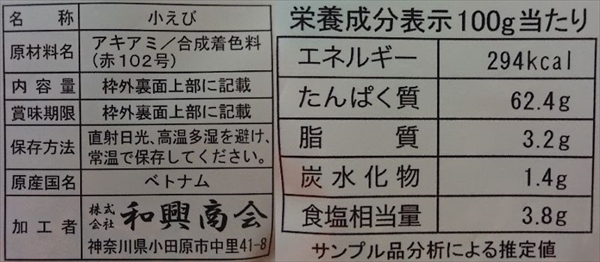 名称 小えび
原材料名 アキアミ／合成着色料
(赤102号)
内容量 枠外裏面上部に記載
賞味期限 枠外裏面上部に記載
保存方法 直射日光、高温多湿を避け、
常温で保存してください。
原産国名 ベトナム
加工者 株式会社 和興商会
神奈川県小田原市中里41-8
栄養成分表示100g当たり
エネルギー 294kcal
たんぱく質 62.4g
脂質 3.2g
炭水化物 1.4g
食塩相当量 3.8g
サンプル品分析による推定値